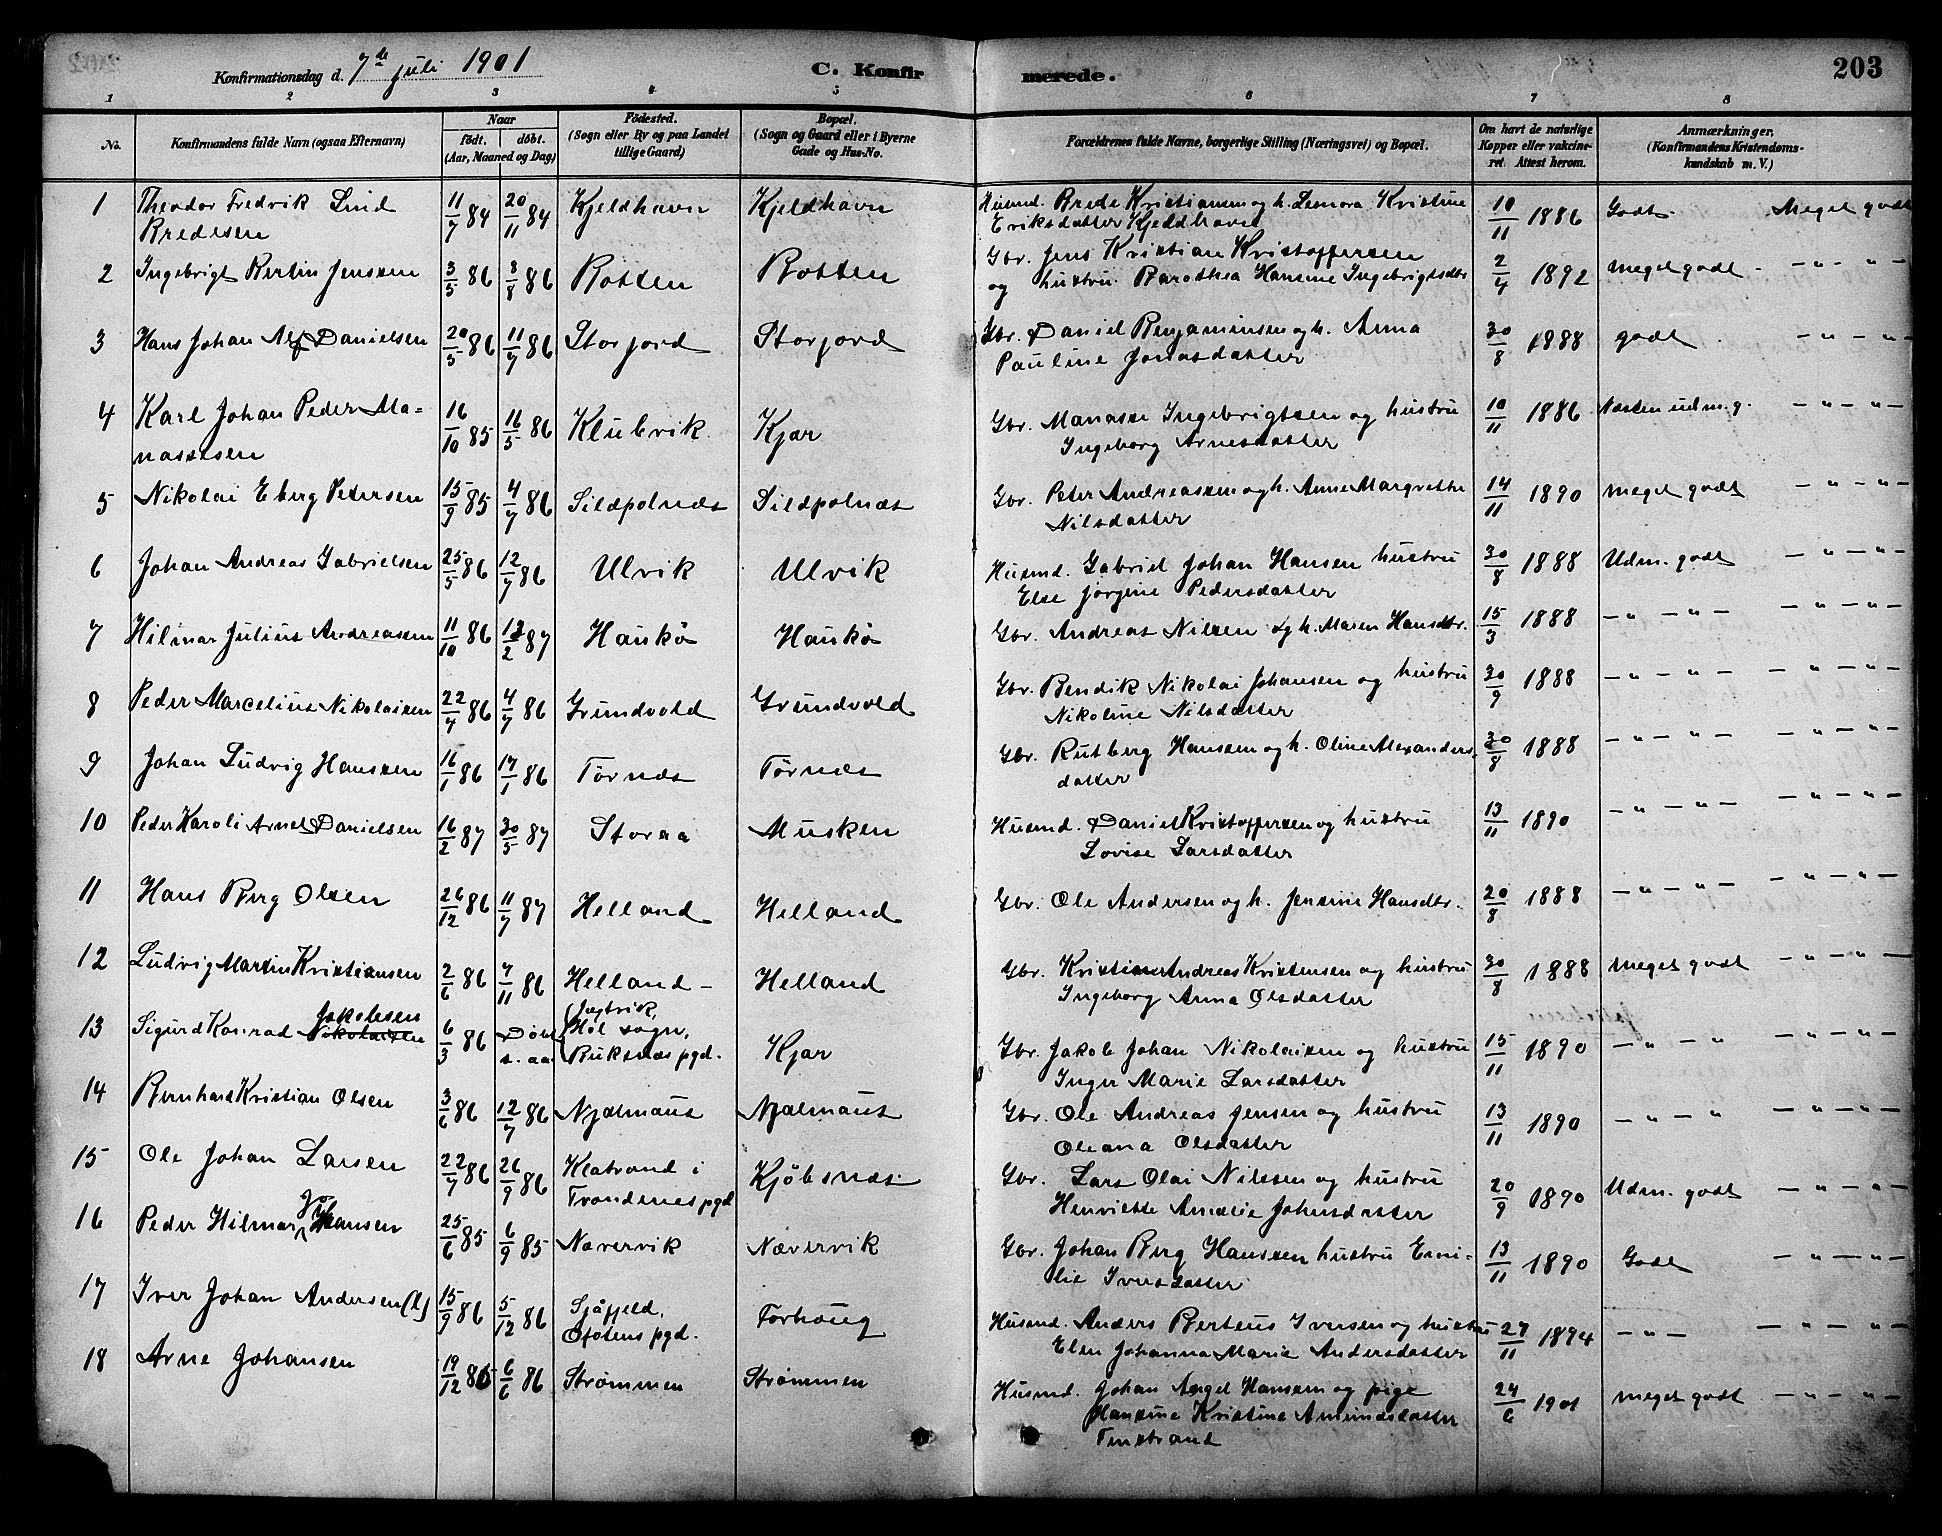 Konfirmationsdag d. 7de juli 1901 C. Konfirmerede. 203
1 2 3 4 5 6 7 8
No. Konfirmandens fulde Navn (ogsaa Efternavn) Naar født. døbt. (Aar, Maaned og Dag) Fødested. (Sogn eller By og paa Landet tillige Gaard) Bopæl. (Sogn og Gaard eller i Byerne Gade og Hus-No. Forældrenes fulde Navne, borgerlige Stilling (Næringsvei) og Bopæl. Om havt de naturlige Kopper eller vakcineret. Attest herom. Anmærkninger. (Konfirmandens Kristendomskundskab m. V.)
1 Theodor Fredrik Lind 11/7 84 20/11 84 Kjeldhavn Kjeldhavn Husmd. Brede Kristiansen og h. Leonora Kristine 10/11 1886 Godt. Meget godt
Bredesen Eriksdatter Kjeldhavn
2 Ingebrigt Bertin Jenssen 3/5 86 8/8 86 Botten Botten Gbr. Jens Kristian Kristoffersen 2/4 1892 Meget godt - — " — " —
og hustru Barothea Hansine Ingebrigtsdtr
3 Hans Johan Alf Danielsen 20/5 86 11/7 86 Storjord Storjord Gbr. Daniel Benjaminsen og h. Anna 30/8 1888 godt — " — " —
Pauline Jonasdatter
4 Karl Johan Peder Ma- 16/10 85 16/5 86 Klubvik. Kjar Gbr. Manasse Ingebrigtsen og hustru 10/11 1886 Næsten udm. g. — " — " —
nassesen Ingeborg Arnesdatter
5 Nikolai Eberg Petersen 15/9 85 4/7 86 Sildpolnæs Sildpolnæs Gbr. Peter Andreassen og h. Anne Margrethe 14/11 1890 meget godt — " — " —
Nilsdatter
6 Johan Andreas Gabrielsen 25/5 86 12/7 86 Ulvik Ulvik Husmd. Gabriel Johan Hansen hustru 30/8 1888 Udm. godt — " — " —
Else Jørgine Pedersdatter
7 Hilmar Julius Andreassen 11/10 86 13/2 87 Haukø Haukø Gbr. Andreas Nilsen og h. Maren Hansdtr. 15/3 1888 — " — " — — " — " —
8 Peder Marcelius Nikolaisen 22/4 86 4/7 86 Grundvold Grundvold Gbr. Bendik Nikolai Johansen og hustru 30/9 1888 — " — " — — " — " —
Nikoline Nilsdatter
9 Johan Ludvig Hanssen 16/1 86 17/1 86 Tørnæs Tørnæs Gbr. Rutberg Hanssen og h. Oline Alexanders 30/8 1888 — " — " — — " — " —
datter
10 Peder Karoli Arnet Danielsen 16/2 87 30/5 87 Storaa Musken Husmd. Daniel Kristoffersen og hustru 13/11 1890 — " — " — — " — " —
Lovise Larsdatter
11 Hans Berg Olsen 26/12 86 11/7 87 Helland Helland Gbr. Ole Andersen og h. Jensine Hansdtr. 20/8 1888 — " — " — — " — " —
12 Ludvig Martin Kristiansen 2/6 86 7/11 86 Helland - Helland Gbr. Kristian Andreas Kristensen og hustru 30/8 1888 Meget godt — " — " —
Ingeborg Anna Olsdatter
Jakobsen
13 Sigurd Konrad Nikolaisen 6/3 86 Døbt s. aa. Høl sogn, Buksnæs pgd. Kjar Gbr. Jakob Johan Nikolaisen og hustru 15/11 1890 — " — " — " — " —
Inger Marie Larsdatter
14 Bernhard Kristian Olsen 3/6 86 12/7 86 Njælmaus Njælmaus Gbr. Ole Andreas Jensen og hustru 13/11 1890 — " — " — " — " —
Oleana Olsdatter
15 Ole Johan Larsen 22/7 86 26/9 86 Klatrand i Trondenes pgd Kjøbsnæs. Gbr. Lars Olai Nilssen og hustru 20/9 1890 Udm. godt — " — " —
Henriette Amalie Johnsdatter
16 Peder Hilmar Johansen 25/6 85 6/9 85 Nævervik Nævervik Gbr. Johan Berg Hanssen hustru Emi- 13/11 1890 Godt — " — " —
lie Iversdatter
17 Iver Johan Andersen (l) 15/9 86 5/12 86 Sjåfjeld, Ofotens pgd. Forhoug Husmd. Anders Berteus Iversen og hustru 27/11 1894 — " — — " — " —
Elen Johanna Marie Andersdatter
18 Arne Johansen 19/12 85 6/6 86 Strømmen Strømmen Husmd. Johan Angel Hansen og pige 24/6 1901 meget godt — " — " —
Hansine Kristine Amundsdatter
Finstrand